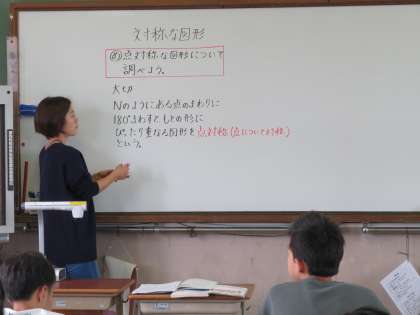 対称な図形
め 点対称な図形について
調べよう。
大切
Nのようにある点のまわりに
180°まわすと、もとの形に
ぴったり重なる図形を点対称(点について対称)
という。